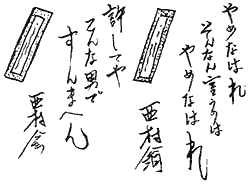 やめなはれ
そんなん言うのは
やめなはれ
亜村翁
許してや
こんな男で
すんまへん
亜村翁